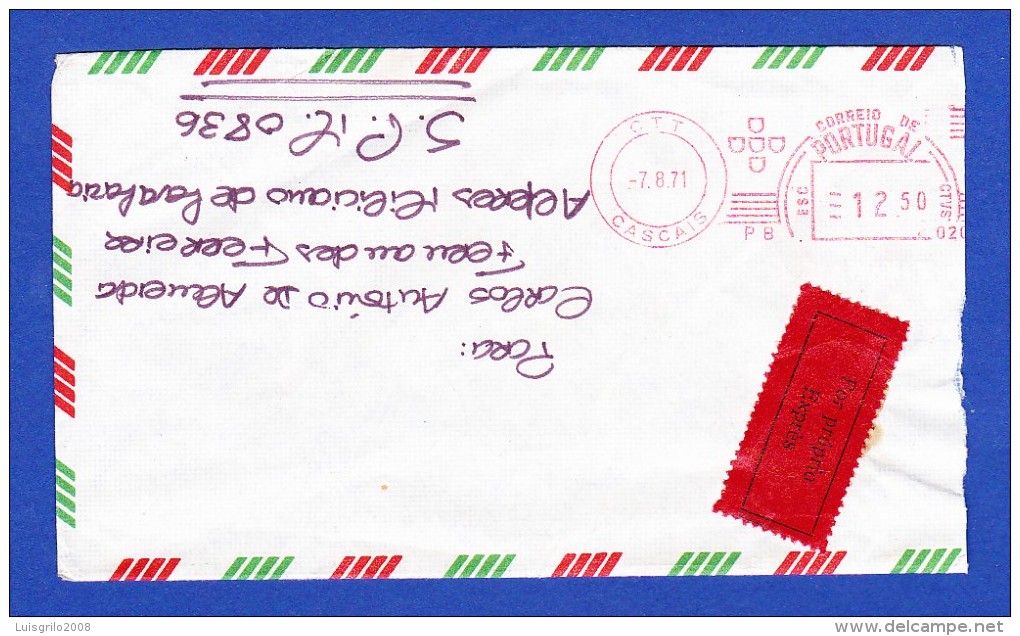 CTT
-7.8.71
CASCAIS
PB
CORREIO DE
PORTUGAL
ESC
12 50
CTVS
020
Por próprio
Exprès
Para:
Carlos António de Almeida
Fernandes Ferreira
Alferes Miliciano de Cavalaria
S.P.M. 0836
Luisgrilo2008
www.delcampe.net